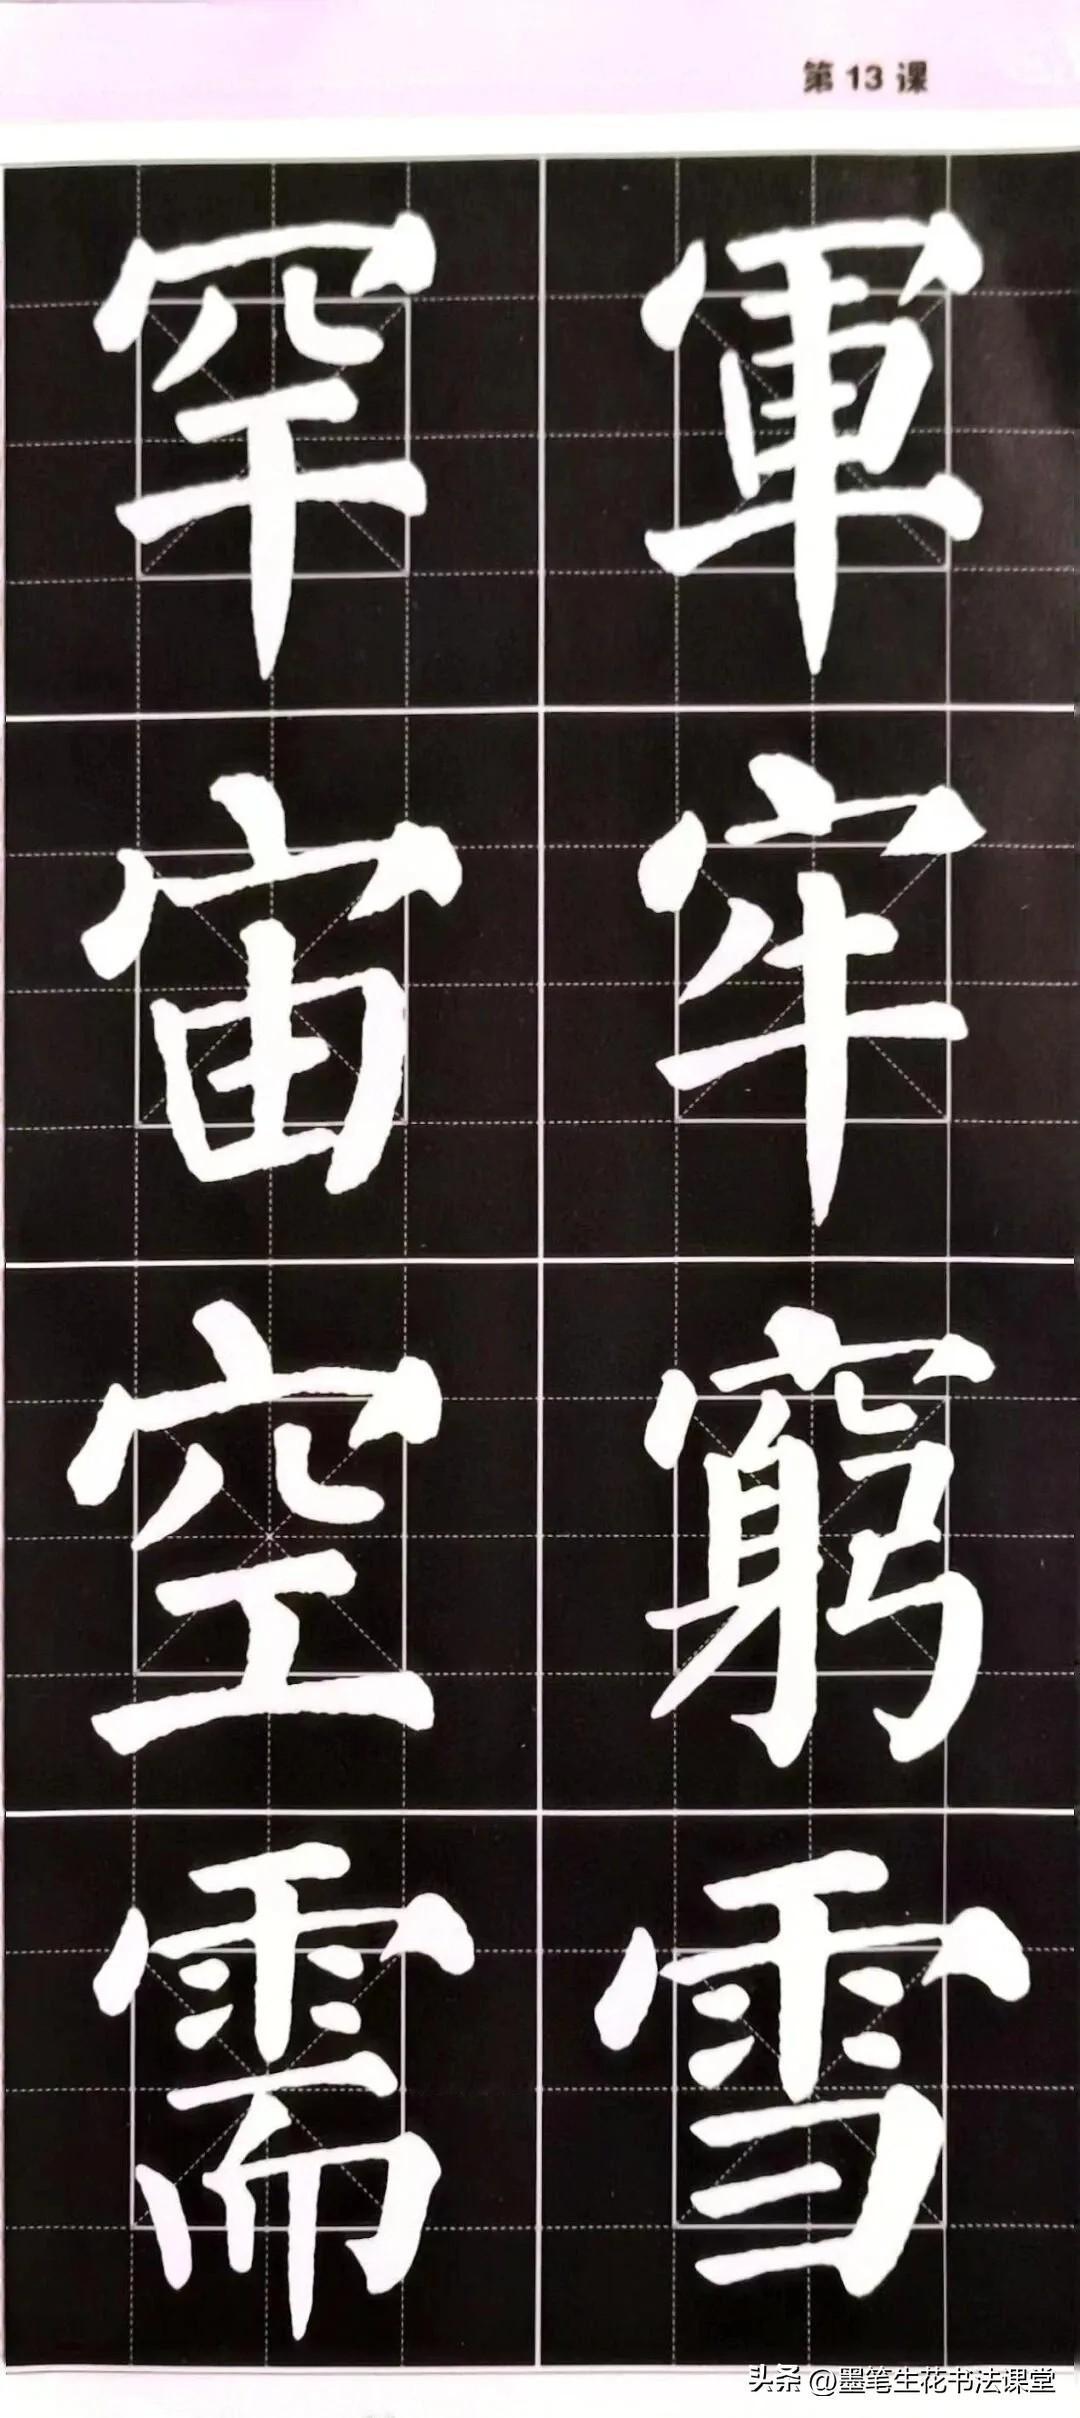 第 13 课
罕 軍
宙 牢
空 窮
需 雪
头条 @墨笔生花书法课堂